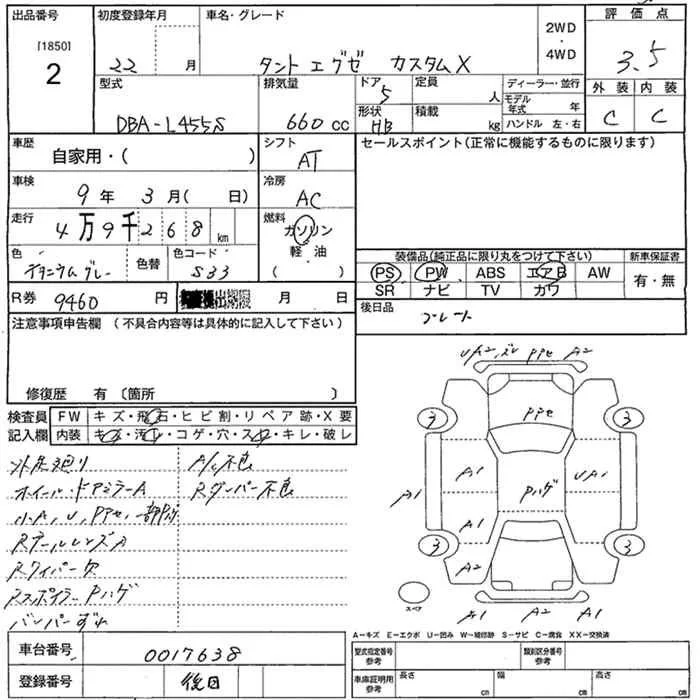 出品番号 初度登録年月 車名・グレード 2WD・4WD 評価点
[1850]
2 22 月 タント エグゼ カスタムX 3.5
型式 排気量 ドア 5 定員 人 ディーラー・並行 外装 内装
DBA-L455S 660cc 形状 HB 積載 kg モデル年式 年 C C
ハンドル 左・右
車歴 自家用・( ) シフト AT セールスポイント(正常に機能するものに限ります)
車検 9年 3月( 日) 冷房 AC
走行 4万9千268km 燃料 ガソリン
軽・油
( )
色 色替 色コード S33
装備品(純品正に限り丸をつけて下さい) 新車保証書
PS PW ABS エアB AW 有・無
SR ナビ TV カワ
R券 9460円 月 日 後日品 プレート
注意事項申告欄 (不具合内容等は具体的に記入して下さい)
修復歴 有 〔箇所 〕
検査員 FW キズ・飛石・ヒビ割・リペア跡・X要
記入欄 内装 キズ・汚レ・コゲ・穴・スレ・キレ・破レ
A/C不良
ホイール・ドアミラーA Rダンパー不良
小A、U、Pアセ、一部
RテールレンズA
Rワイパー欠
Rスポイラー Pハゲ
バンパーずれ
UA2、ズレ Pアセ A2
3 Pアセ 3
A1 A1 Pハゲ UA1
A1
3 3
A2
スペア A1 A2 A1
A-キズ E-エクボ U-凹み W-補修跡 S-サビ C-腐食 XX-交換済
車台番号 0017638 型式指定番号参考 類別区分番号参考
登録番号 後日 車庫証明用参考 長さ cm 幅 cm 高さ cm